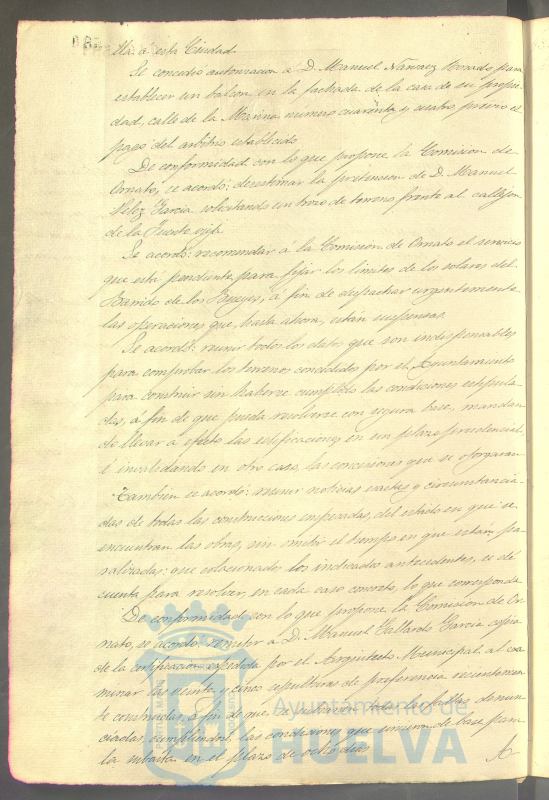 lla á esta Ciudad.
Se concedió autorizacion á D. Manuel Narvaez Honrado para
establecer un balcon en la fachada de la casa de su propie-
dad, calle de la Marina número cuarenta y cuatro previo el
pago del arbitrio establecido.
De conformidad con lo que propone la Comision de
Ornato, se acordó: desestimar la pretension de D. Manuel
Velez Garcia solicitando un trozo de terreno frente al callejon
de la Fuente vieja.
Se acordó: recomendar á la Comision de Ornato el servicio
que está pendiente para fijar los limites de los solares del
Barrido de los Bueyes, á fin de despachar urgentemente
las operaciones que, hasta ahora, están suspensas.
Se acordó: reunir todos los datos que son indispensables
para comprobar los terrenos concedidos por el Ayuntamiento
para construir sin haberse cumplido las condiciones estipula-
das, á fin de que pueda resolverse con segura base, mandan-
do llevar á efecto las edificaciones en un plazo prudencial,
é invalidando en otro caso, las concesiones que se otorgaran.
Tambien se acordó: reunir noticias exactas y circunstancia-
das de todas las construcciones empezadas, del estado en que se
encuentran las obras, sin omitir el tiempo en que están pa-
ralizadas: que relacionados los indicados antecedentes, se dé
cuenta para resolver, en cada caso concreto, lo que corresponda.
De conformidad con lo que propone la Comision de Or-
nato, se acordó: remitir á D. Manuel Gallardo Garcia copia
de la certificacion expedida por el Arquitecto Municipal al exa-
minar las veinte y cinco sepulturas de preferencia recientemen-
te construidas, á fin de que se subsanen los defectos denun-
ciados, cumpliendo las condiciones que sirvieron de base para
la subasta en el plazo de ocho dias.
A
Ayuntamiento de
HUELVA